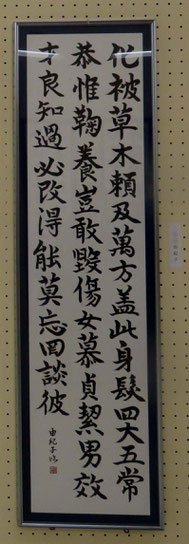 化被草木頼及萬方盖此身髮四大五常
恭惟鞠養豈敢毀傷女慕貞絜男效
才良知過必改得能莫忘罔談彼
由紀子臨